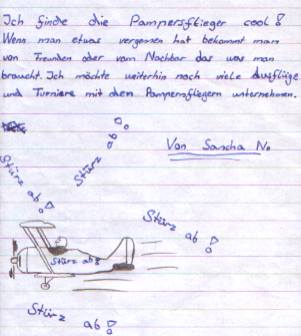 Ich finde die Pampersflieger cool!
Wenn man etwas vergessen hat bekommt man
von Freunden oder vom Nachbar das was man
braucht. Ich möchte weiterhin noch viele Ausflüge
und Turniere mit den Pampersfliegern unternehmen.
Stürz ab!
Stürz ab!
Von Sascha N.
Stürz ab!
Stürz ab!
Stürz ab!